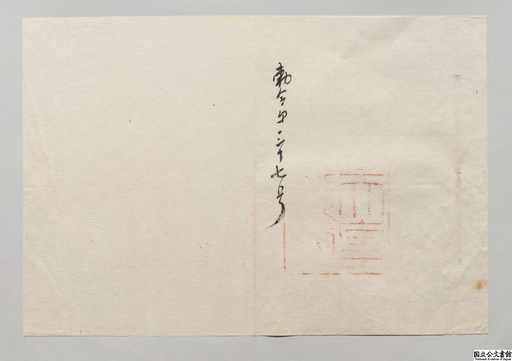 勅令第三十七号
国立公文書館
National Archives of Japan